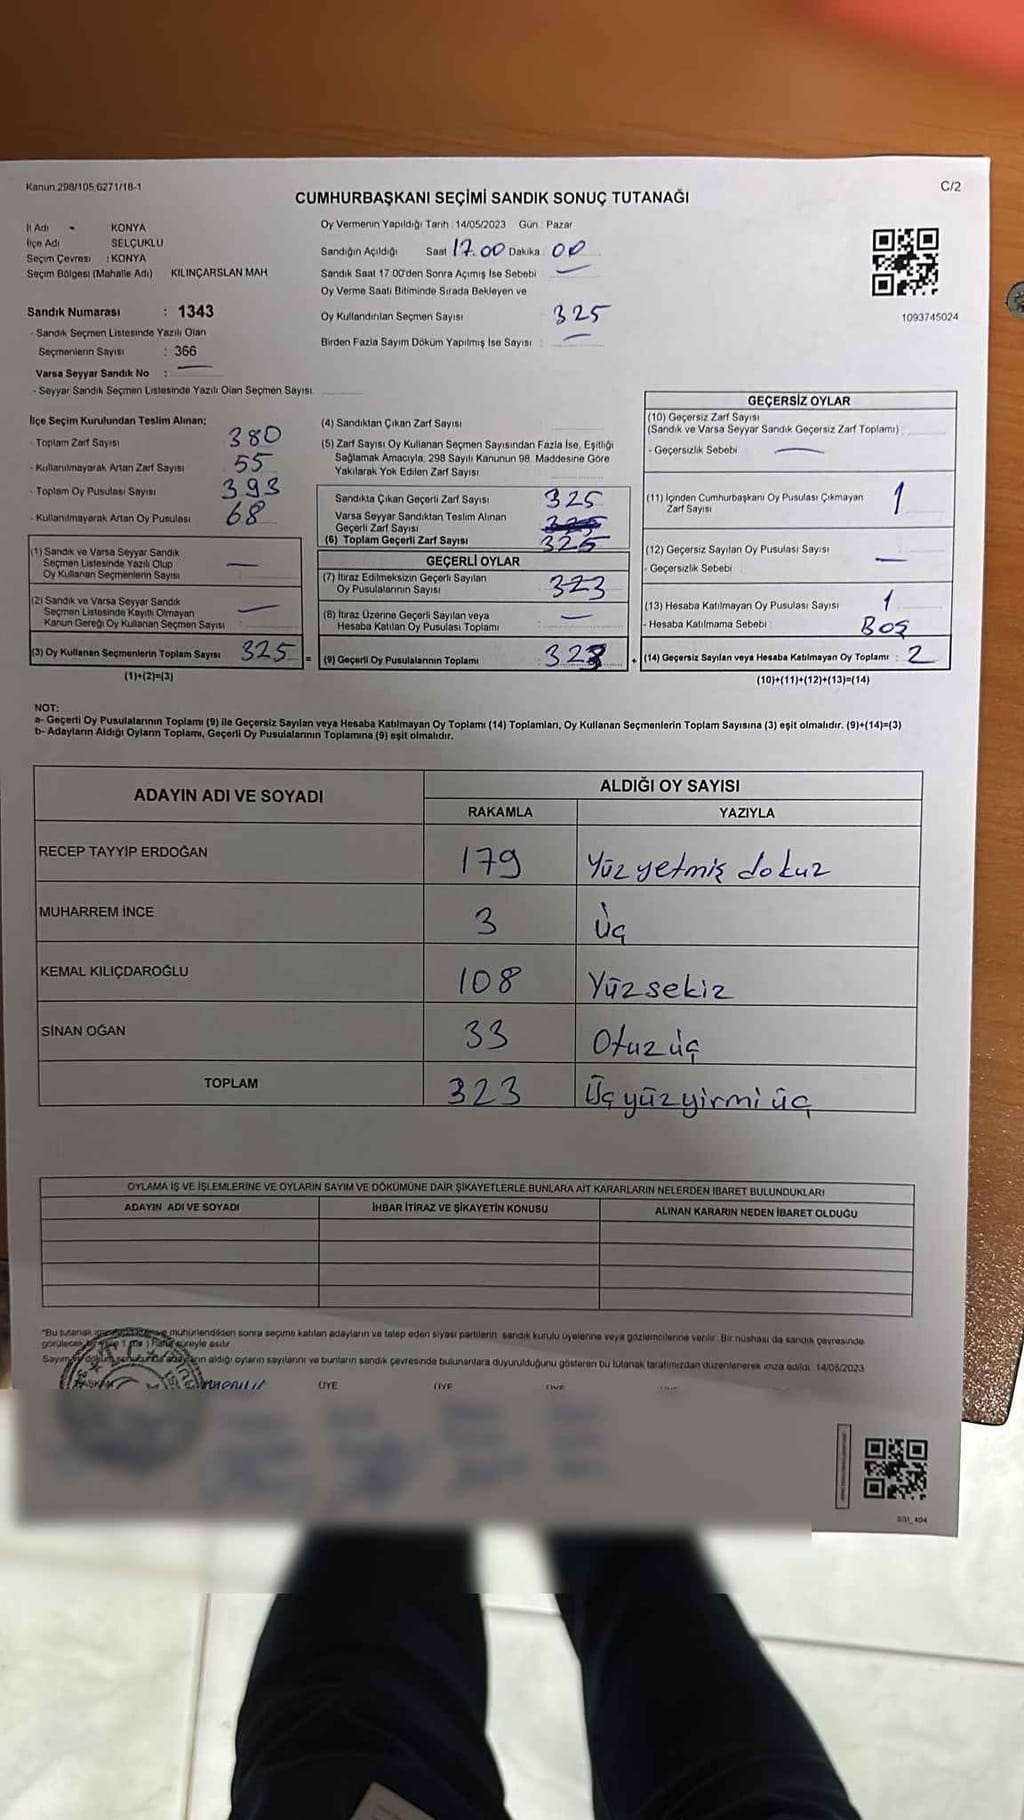 Kanun 298/105,6271/18-1
C/2
CUMHURBAŞKANI SEÇİMİ SANDIK SONUÇ TUTANAĞI
İl Adı - KONYA
İlçe Adı SELÇUKLU
Seçim Çevresi : KONYA
Seçim Bölgesi (Mahalle Adı) KILINÇARSLAN MAH
Sandık Numarası : 1343
- Sandık Seçmen Listesinde Yazılı Olan
Seçmenlerin Sayısı : 366
Varsa Seyyar Sandık No : —
- Seyyar Sandık Seçmen Listesinde Yazılı Olan Seçmen Sayısı
Oy Vermenin Yapıldığı Tarih : 14/05/2023 Gün : Pazar
Sandığın Açıldığı Saat 17.00 Dakika : 00
Sandık Saat 17.00'den Sonra Açımış İse Sebebi —
Oy Verme Saati Bitiminde Sırada Bekleyen ve
Oy Kullandırılan Seçmen Sayısı 325
Birden Fazla Sayım Döküm Yapılmış İse Sayısı : —
1093745024
İlçe Seçim Kurulundan Teslim Alınan;
- Toplam Zarf Sayısı 380
- Kullanılmayarak Artan Zarf Sayısı 55
- Toplam Oy Pusulası Sayısı 393
- Kullanılmayarak Artan Oy Pusulası 68
(1) Sandık ve Varsa Seyyar Sandık
Seçmen Listesinde Yazılı Olup
Oy Kullanan Seçmenlerin Sayısı —
(2) Sandık ve Varsa Seyyar Sandık
Seçmen Listesinde Kayıtlı Olmayan
Kanun Gereği Oy Kullanan Seçmen Sayısı —
(3) Oy Kullanan Seçmenlerin Toplam Sayısı 325 =
(1)+(2)=(3)
(4) Sandıktan Çıkan Zarf Sayısı
(5) Zarf Sayısı Oy Kullanan Seçmen Sayısından Fazla İse, Eşitliği
Sağlamak Amacıyla, 298 Sayılı Kanunun 98. Maddesine Göre
Yakılarak Yok Edilen Zarf Sayısı
Sandıkta Çıkan Geçerli Zarf Sayısı 325
Varsa Seyyar Sandıktan Teslim Alınan
Geçerli Zarf Sayısı
(6) Toplam Geçerli Zarf Sayısı 325
GEÇERLİ OYLAR
(7) İtiraz Edilmeksizin Geçerli Sayılan
Oy Pusulasının Sayısı 323
(8) İtiraz Üzerine Geçerli Sayılan veya
Hesaba Katılan Oy Pusulası Toplamı —
(9) Geçerli Oy Pusulalarının Toplamı : 323 +
GEÇERSİZ OYLAR
(10) Geçersiz Zarf Sayısı
(Sandık ve Varsa Seyyar Sandık Geçersiz Zarf Toplamı)
- Geçersizlik Sebebi : —
(11) İçinden Cumhurbaşkanı Oy Pusulası Çıkmayan
Zarf Sayısı 1
(12) Geçersiz Sayılan Oy Pusulası Sayısı
- Geçersizlik Sebebi : —
(13) Hesaba Katılmayan Oy Pusulası Sayısı 1
- Hesaba Katılmama Sebebi : Boş
(14) Geçersiz Sayılan veya Hesaba Katılmayan Oy Toplamı : 2
(10)+(11)+(12)+(13)=(14)
NOT:
a- Geçerli Oy Pusulalarının Toplamı (9) ile Geçersiz Sayılan veya Hesaba Katılmayan Oy Toplamı (14) Toplamları, Oy Kullanan Seçmenlerin Toplam Sayısına (3) eşit olmalıdır. (9)+(14)=(3)
b- Adayların Aldığı Oyların Toplamı, Geçerli Oy Pusulalarının Toplamına (9) eşit olmalıdır.
ADAYIN ADI VE SOYADI ALDIĞI OY SAYISI
RAKAMLA YAZIYLA
RECEP TAYYİP ERDOĞAN 179 Yüz yetmiş dokuz
MUHARREM İNCE 3 Üç
KEMAL KILIÇDAROĞLU 108 Yüzsekiz
SİNAN OĞAN 33 Otuzüç
TOPLAM 323 Üçyüzyirmiüç
OYLAMA İŞ VE İŞLEMLERİNE VE OYLARIN SAYIM VE DÖKÜMÜNE DAİR ŞİKAYETLERLE BUNLARA AİT KARARLARIN NELERDEN İBARET BULUNDUKLARI
ADAYIN ADI VE SOYADI İHBAR İTİRAZ VE ŞİKAYETİN KONUSU ALINAN KARARIN NEDEN İBARET OLDUĞU
"Bu tutanak mühürlendikten sonra seçime katılan adayların ve talep eden siyasi partilerin sandık kurulu üyelerine veya gözlemcilerine verilir. Bir nüshası da sandık çevresinde
görülecek süreyle asılır
Sayım aldığı oyların sayılarını ve bunların sandık çevresinde bulunanlara duyurulduğunu gösteren bu tutanak tarafımızdan düzenlenerek imza edildi. 14/05/2023
BAŞKAN ÜYE ÜYE ÜYE